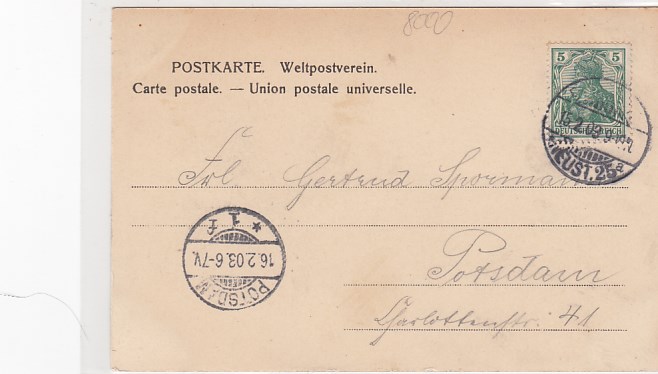 8000
POSTKARTE. Weltpostverein.
Carte postale. — Union postale universelle.
5 5
DEUTSCHES REICH
15.2.03.
NEUST. 26a
Frl Gertrud Sporman
POTSDAM
16.2.03.6-7V.
* 1 f
Potsdam
Charlottenstr. 41